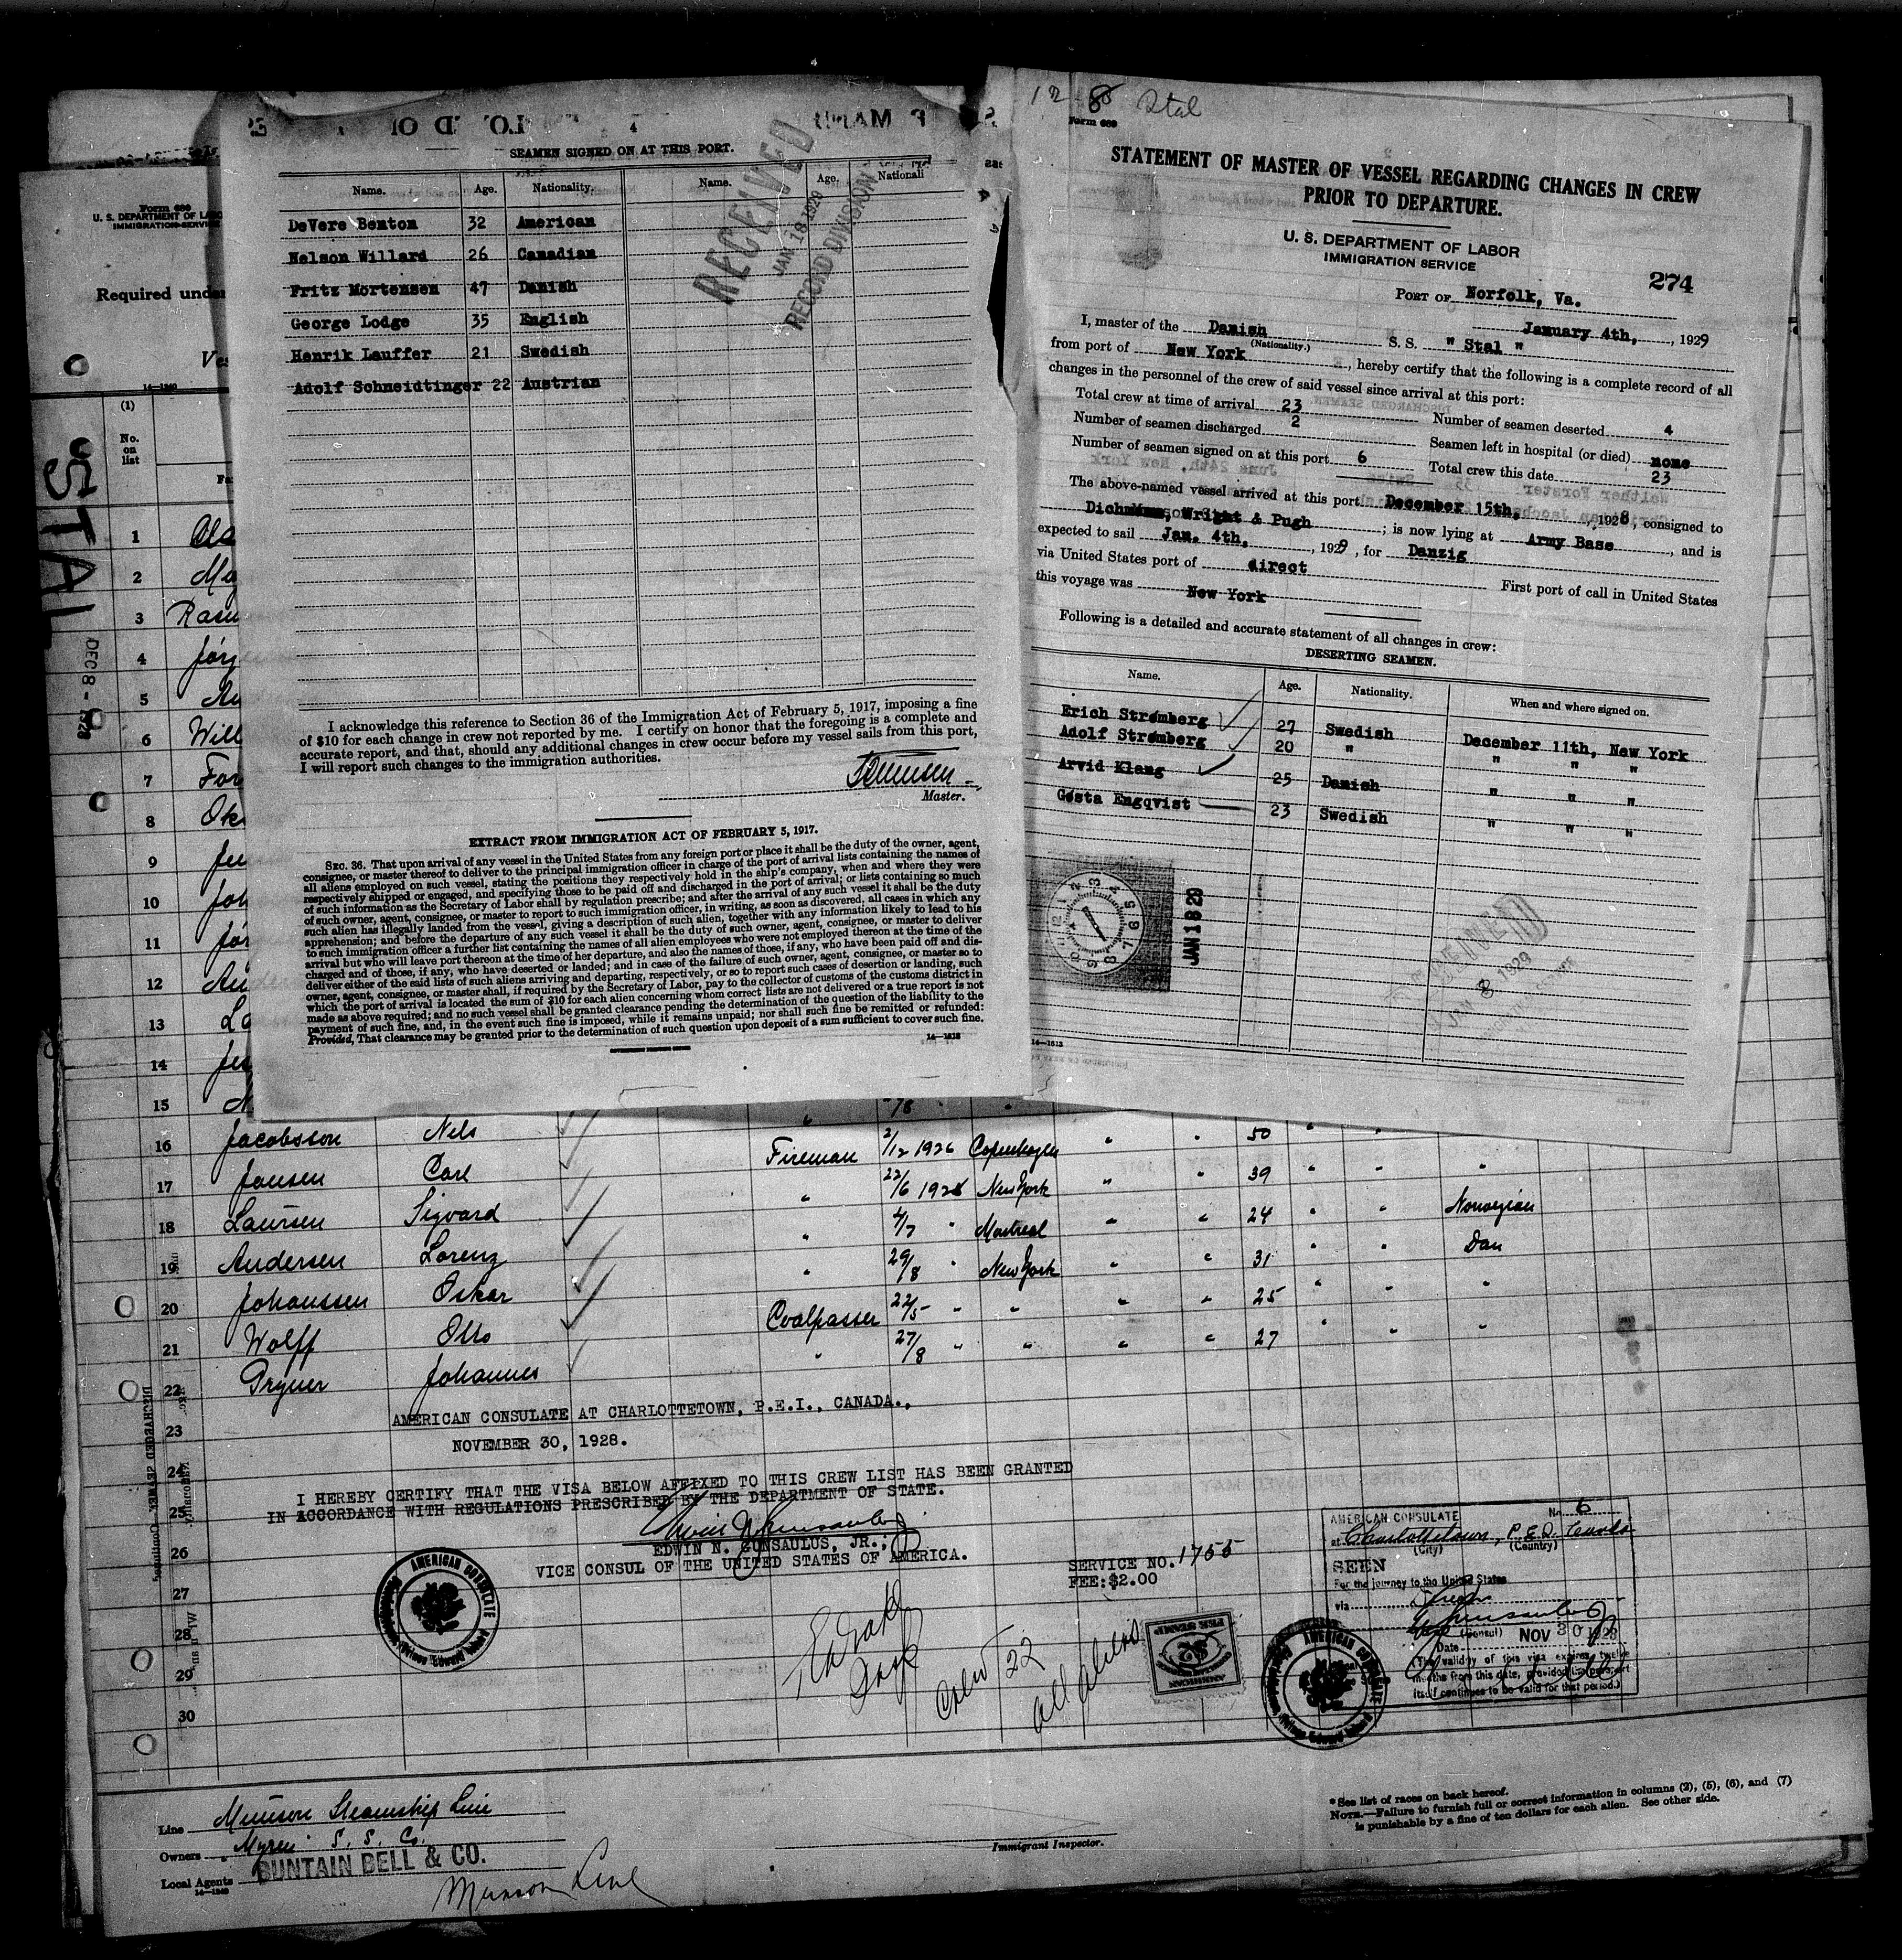 SEAMEN SIGNED ON AT THIS PORT.
Name. Age. Nationality. Name. Age. Nationali
DeVere Benton 32 American
Nelson Willard 26 Canadian
Fritz Mortensen 47 Danish
George Lodge 35 English
Henrik Lauffer 21 Swedish
Adolf Schneidtinger 22 Austrian
RECEIVED
JAN 18 1929
RECORD DIVISION
I acknowledge this reference to Section 36 of the Immigration Act of February 5, 1917, imposing a fine
of $10 for each change in crew not reported by me. I certify on honor that the foregoing is a complete and
accurate report, and that, should any additional changes in crew occur before my vessel sails from this port,
I will report such changes to the immigration authorities.
Master.
EXTRACT FROM IMMIGRATION ACT OF FEBRUARY 5, 1917.
SEC. 36. That upon arrival of any vessel in the United States from any foreign port or place it shall be the duty of the owner, agent,
consignee, or master thereof to deliver to the principal immigration officer in charge of the port of arrival lists containing the names of
all aliens employed on such vessel, stating the positions they respectively hold in the ship's company, when and where they were
respectively shipped or engaged, and specifying those to be paid off and discharged in the port of arrival; or lists containing so much
of such information as the Secretary of Labor shall by regulation prescribe; and after the arrival of any such vessel it shall be the duty
of such owner, agent, consignee, or master to report to such immigration officer, in writing, as soon as discovered, all cases in which any
such alien has illegally landed from the vessel, giving a description of such alien, together with any information likely to lead to his
apprehension; and before the departure of any such vessel it shall be the duty of such owner, agent, consignee, or master to deliver
to such immigration officer a further list containing the names of all alien employees who were not employed thereon at the time of the
arrival but who will leave port thereon at the time of her departure, and also the names of those, if any, who have been paid off and dis-
charged and of those, if any, who have deserted or landed; and in case of the failure of such owner, agent, consignee, or master so to
deliver either of the said lists of such aliens arriving and departing, respectively, or so to report such cases of desertion or landing, such
owner, agent, consignee, or master shall, if required by the Secretary of Labor, pay to the collector of customs of the customs district in
which the port of arrival is located the sum of $10 for each alien concerning whom correct lists are not delivered or a true report is not
made as above required; and no such vessel shall be granted clearance pending the determination of the question of the liability to the
payment of such fine, and, in the event such fine is imposed, while it remains unpaid; nor shall such fine be remitted or refunded:
Provided, That clearance may be granted prior to the determination of such question upon deposit of a sum sufficient to cover such fine.
14—1613
GOVERNMENT PRINTING OFFICE
12-8 Stal
Form 689
STATEMENT OF MASTER OF VESSEL REGARDING CHANGES IN CREW
PRIOR TO DEPARTURE.
U. S. DEPARTMENT OF LABOR
IMMIGRATION SERVICE
274
PORT OF Norfolk, Va.
January 4th, , 1929
I, master of the Danish S. S. " Stal "
(Nationality.)
from port of New York , hereby certify that the following is a complete record of all
changes in the personnel of the crew of said vessel since arrival at this port:
Total crew at time of arrival 23 Number of seamen deserted 4
Number of seamen discharged 2 Seamen left in hospital (or died) none
Number of seamen signed on at this port 6 Total crew this date 23
The above-named vessel arrived at this port December 15th, , 1928, consigned to
Dichmann, Wright & Pugh ; is now lying at Army Base , and is
expected to sail Jan. 4th, , 1929, for Danzig
via United States port of direct First port of call in United States
this voyage was New York
Following is a detailed and accurate statement of all changes in crew:
DESERTING SEAMEN.
Name. Age. Nationality. When and where signed on.
Erich Strømberg 27 Swedish December 11th, New York
Adolf Strømberg 20 " " " "
Arvid Klang 25 Danish " " "
Gøsta Engqvist 23 Swedish " " "
JAN 18 29
14—1613
Form 680
U. S. DEPARTMENT OF LABO
IMMIGRATION SERVICE
Required under
Ves
14—1240
(1)
No.
on
list
STAL
DEC 8 - 1928
1
2
3 Rasm
4 Jörg
5
6 Will
7
8
9
10 Joh
11 Jör
12
13
14
15
16 Jacobsson Nels Fireman 2/12 1926 Copenhagen " " 50 " "
17 Jansen Carl " 22/6 1928 New York " " 39 " " "
18 Laursen Sigvard " 4/7 " Montreal " " 24 " " Norwegian
19 Andersen Lorenz " 29/8 " New York " " 31 " " Dan
20 Johanssen Oskar Coalpasser 22/5 " " " " 25 " " "
21 Wolff Otto " 27/8 " " " " 27 " " "
22 Pryner Johannes
23
24
25
26
27
28
29
30
AMERICAN CONSULATE AT CHARLOTTETOWN, P.E.I., CANADA.,
NOVEMBER 30, 1928.
I HEREBY CERTIFY THAT THE VISA BELOW AFFIXED TO THIS CREW LIST HAS BEEN GRANTED
IN ACCORDANCE WITH REGULATIONS PRESCRIBED BY THE DEPARTMENT OF STATE.
EDWIN N. GUNSAULUS, JR.;
VICE CONSUL OF THE UNITED STATES OF AMERICA.
SERVICE NO. 1755
FEE: $2.00
AMERICAN CONSULATE
Crew 22
all aliens
AMERICAN CONSULATE No 6
at Charlottetown, P.E.I. Canada
(City) (Country)
SEEN
For the journey to the United States
via
(Consul)
Date NOV 30 1928
(The validity of this visa expires twelve
months from this date, provided the passport
itself continues to be valid for that period.)
Line Munson Steamship Line
Owners Myren S. S. Co.
Local Agents BUNTAIN BELL & CO.
14—1240
Munson Line
Immigrant Inspector.
* See list of races on back hereof.
NOTE.—Failure to furnish full or correct information in columns (2), (5), (6), and (7)
is punishable by a fine of ten dollars for each alien. See other side.